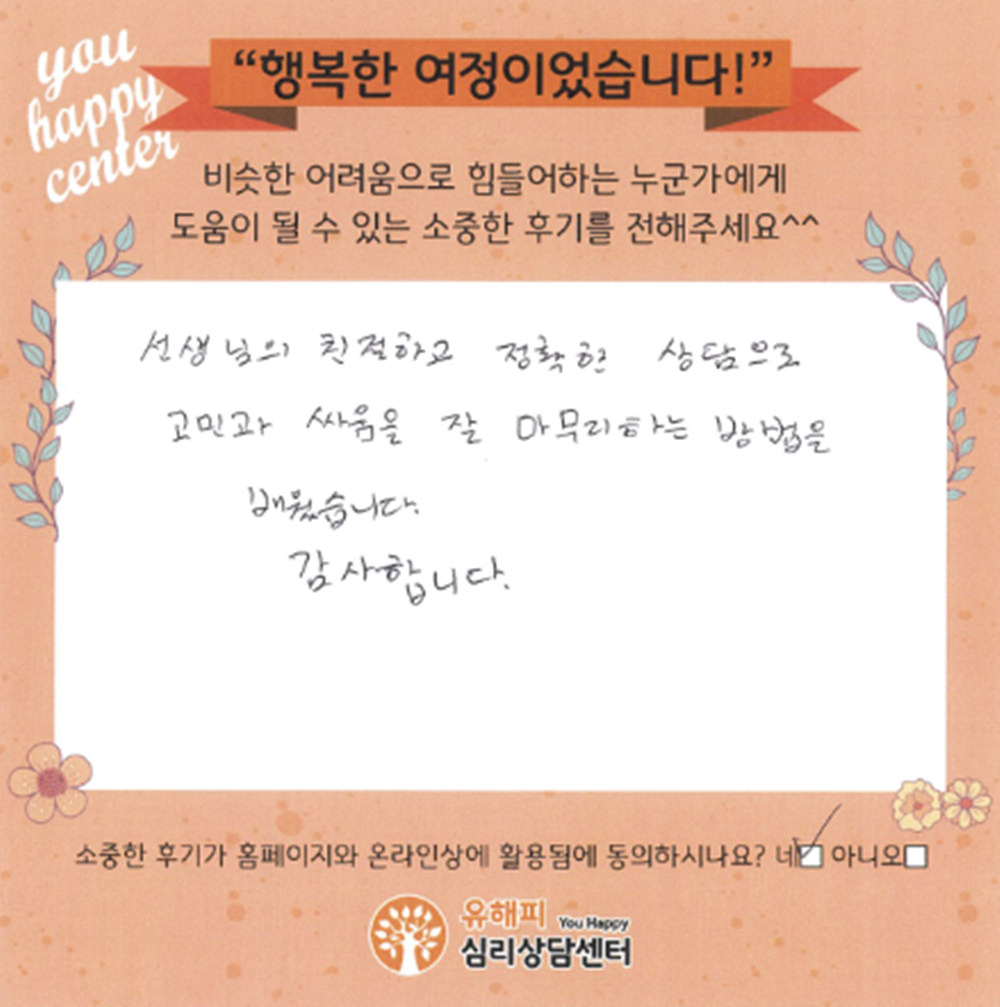 you
happy
center
“행복한 여정이었습니다!”
비슷한 어려움으로 힘들어하는 누군가에게
도움이 될 수 있는 소중한 후기를 전해주세요^^
선생님의 친절하고 정확한 상담으로
고민과 싸움을 잘 마무리하는 방법을
배웠습니다.
감사합니다.
소중한 후기가 홈페이지와 온라인상에 활용됨에 동의하시나요? 네☑ 아니오☐
유해피 You Happy
심리상담센터